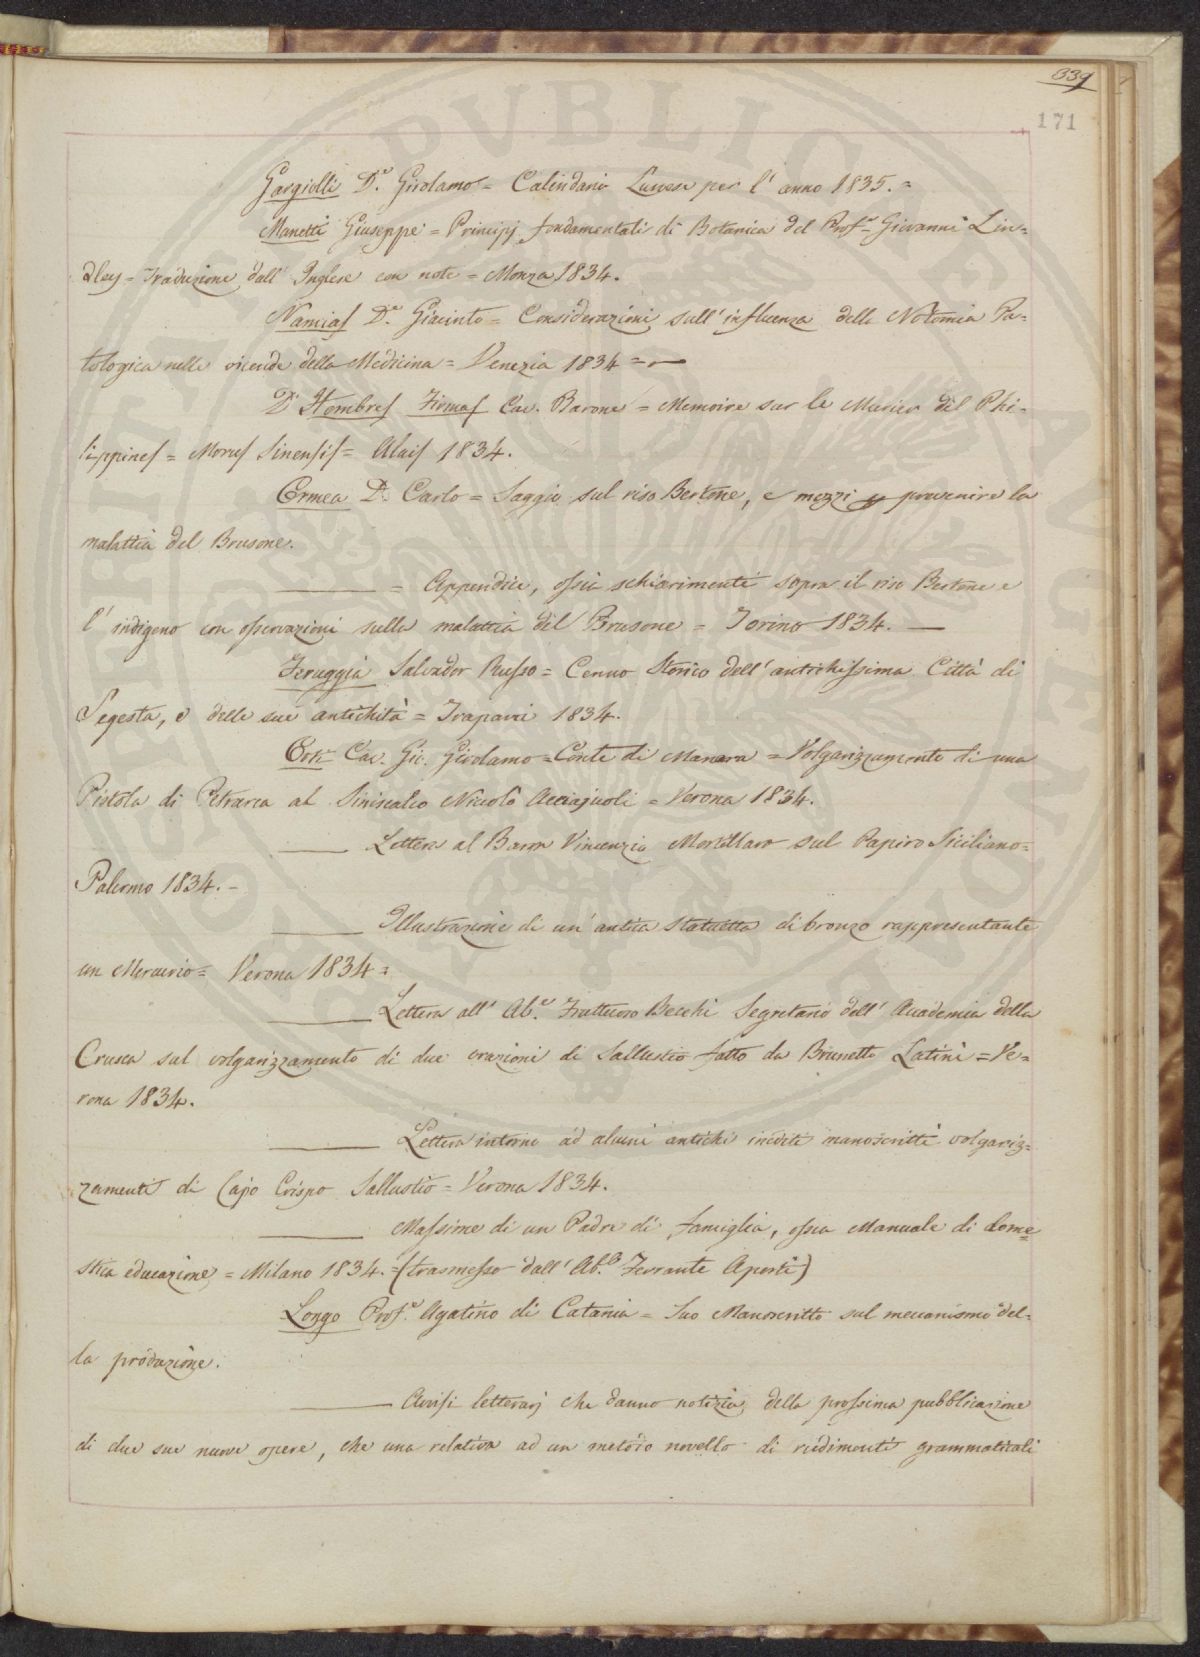 339
171
Gargiolli D.r Girolamo = Calendario Lunese per l' anno 1835. =
Manetti Giuseppe = Principj fondamentali di Botanica del Prof.r Giovanni Lin=
dley = Traduzione dall' Inglese con note = Monza 1834.
Namias D.r Giacinto = Considerazioni sull' influenza della Notomia Pa=
tologica nelle vicende della Medicina = Venezia 1834 =
D' Hombres Firmas Cav. Barone = Memoire sur le Murier del Phi=
lippines = Morus Sinensis = Alais 1834.
Ormea D. Carlo = Saggio sul riso Bertone, e mezzi prevenire la
malattia del Brusone.
= Appendice, ossia schiarimenti sopra il riso Bertone e
l' indigeno con osservazioni sulla malattia del Brusone = Torino 1834.
Feruggia Salvador Russo = Cenno Storico dell' antichissima Città di
Segesta, e delle sue antichità = Trapani 1834.
Orti Cav. Gio. Girolamo = Conte di Manara = Volgarizzamento di una
Pistola di Petrarca al Siniscalco Niccolò Acciajuoli = Verona 1834.
Lettera al Baron Vincenzio Mortillaro sul Papiro Siciliano =
Palermo 1834. =
Illustrazione di un' antica statuetta di bronzo rappresentante
un Mercurio = Verona 1834 =
Lettera all' Ab.e Fruttuoso Becchi Segretario dell' Accademia della
Crusca sul volgarizzamento di due orazioni di Sallustio fatto da Brunetto Latini = Ve=
rona 1834.
Lettera intorno ad alcuni antichi inediti manoscritti volgariz=
zamenti di Cajo Crispo Sallustio = Verona 1834.
Massime di un Padre di famiglia, ossia Manuale di dome=
stica educazione = Milano 1834. = (trasmesso dall' Ab.e Ferrante Aporti)
Longo Prof.r Agatino di Catania = Suo Manoscritto sul meccanismo del=
la produzione.
Avvisi letterarj che danno notizia della prossima pubblicazione
di due sue nuove opere, che una relativa ad un metodo novello di rudimenti grammaticali